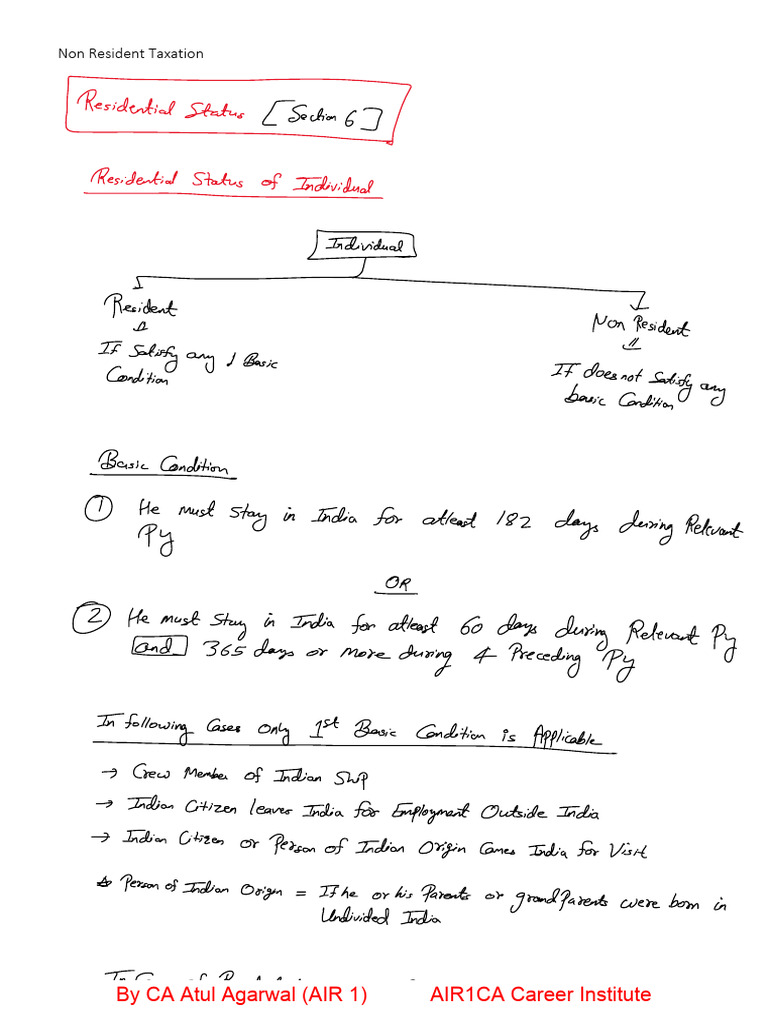 Non Resident Taxation
Residential Status [Section 6]
Residential Status of Individual
Individual
Resident
If Satisfy any 1 Basic
Condition
Non Resident
If does not Satisfy any
basic Condition
Basic Condition
① He must stay in India for atleast 182 days during Relevant
Py
OR
② He must stay in India for atleast 60 days during Relevant Py
and 365 days or more during 4 Preceding Py
In following Cases only 1st Basic Condition is Applicable
→ Crew Member of Indian Ship
→ Indian Citizen leaves India for Employment Outside India
→ Indian Citizen or Person of Indian Origin Comes India for Visit
Person of Indian Origin = If he or his Parents or grand Parents were born in
Undivided India
By CA Atul Agarwal (AIR 1) AIR1CA Career Institute